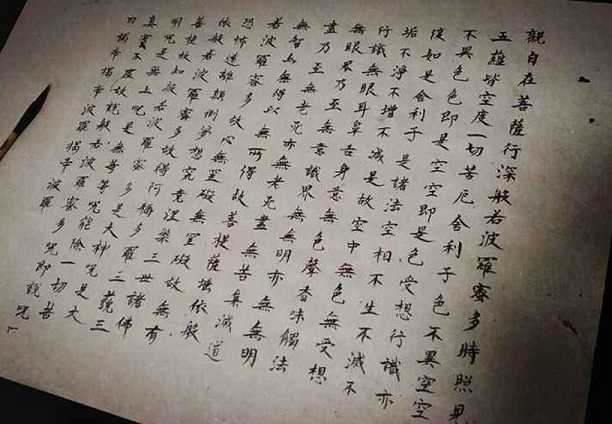 觀自在菩薩行深般若波羅蜜多時照見
五蘊皆空度一切苦厄舍利子色不異空空
不異色色即是空空即是色受想行識亦
復如是舍利子是諸法空相不生不滅不
垢不淨不增不減是故空中無色無受想
行識無眼耳鼻舌身意無色聲香味觸法
無眼界乃至無意識界無無明亦無無明
盡乃至無老死亦無老死盡無苦集滅道
無智亦無得以無所得故菩提薩埵依般
若波羅蜜多故心無罣礙無罣礙故無有
恐怖遠離顛倒夢想究竟涅槃三世諸佛
依般若波羅蜜多故得阿耨多羅三藐三
菩提故知般若波羅蜜多是大神呪是大
明呪是無上呪是無等等呪能除一切苦
真實不虛故說般若波羅蜜多呪即說呪
曰揭帝揭帝波羅揭帝波羅